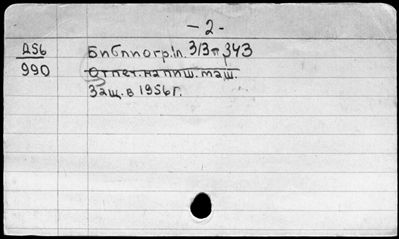 - 2 -
А56
990
Библиогр.:л. 313-343
Отпеч. на пиш. маш.
Защ. в 1956г.